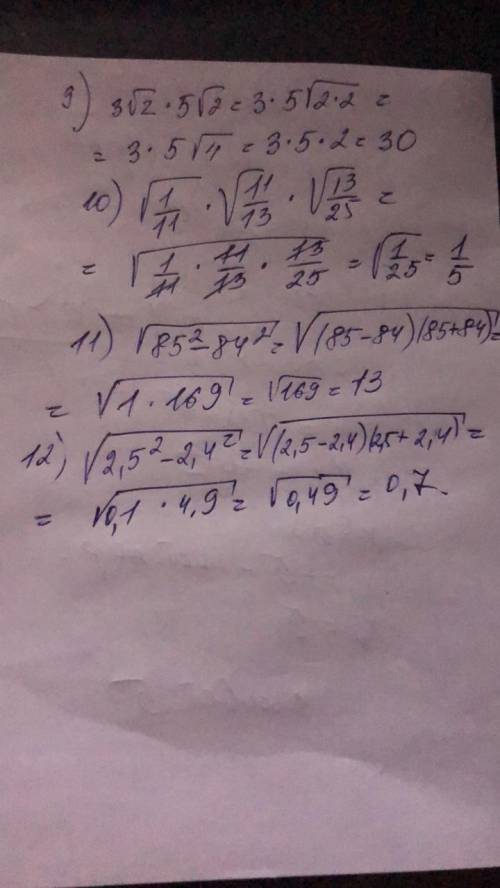 9) 3√2 · 5√2 = 3 · 5√2·2 =
= 3 · 5√4 = 3 · 5 · 2 = 30
10) √1/11 · √11/13 · √13/25 =
= √1/11 · 11/13 · 13/25 = √1/25 = 1/5
11) √85²-84² = √(85-84)(85+84) =
= √1 · 169 = √169 = 13
12) √2,5²-2,4² = √(2,5-2,4)(2,5+2,4) =
= √0,1 · 4,9 = √0,49 = 0,7.